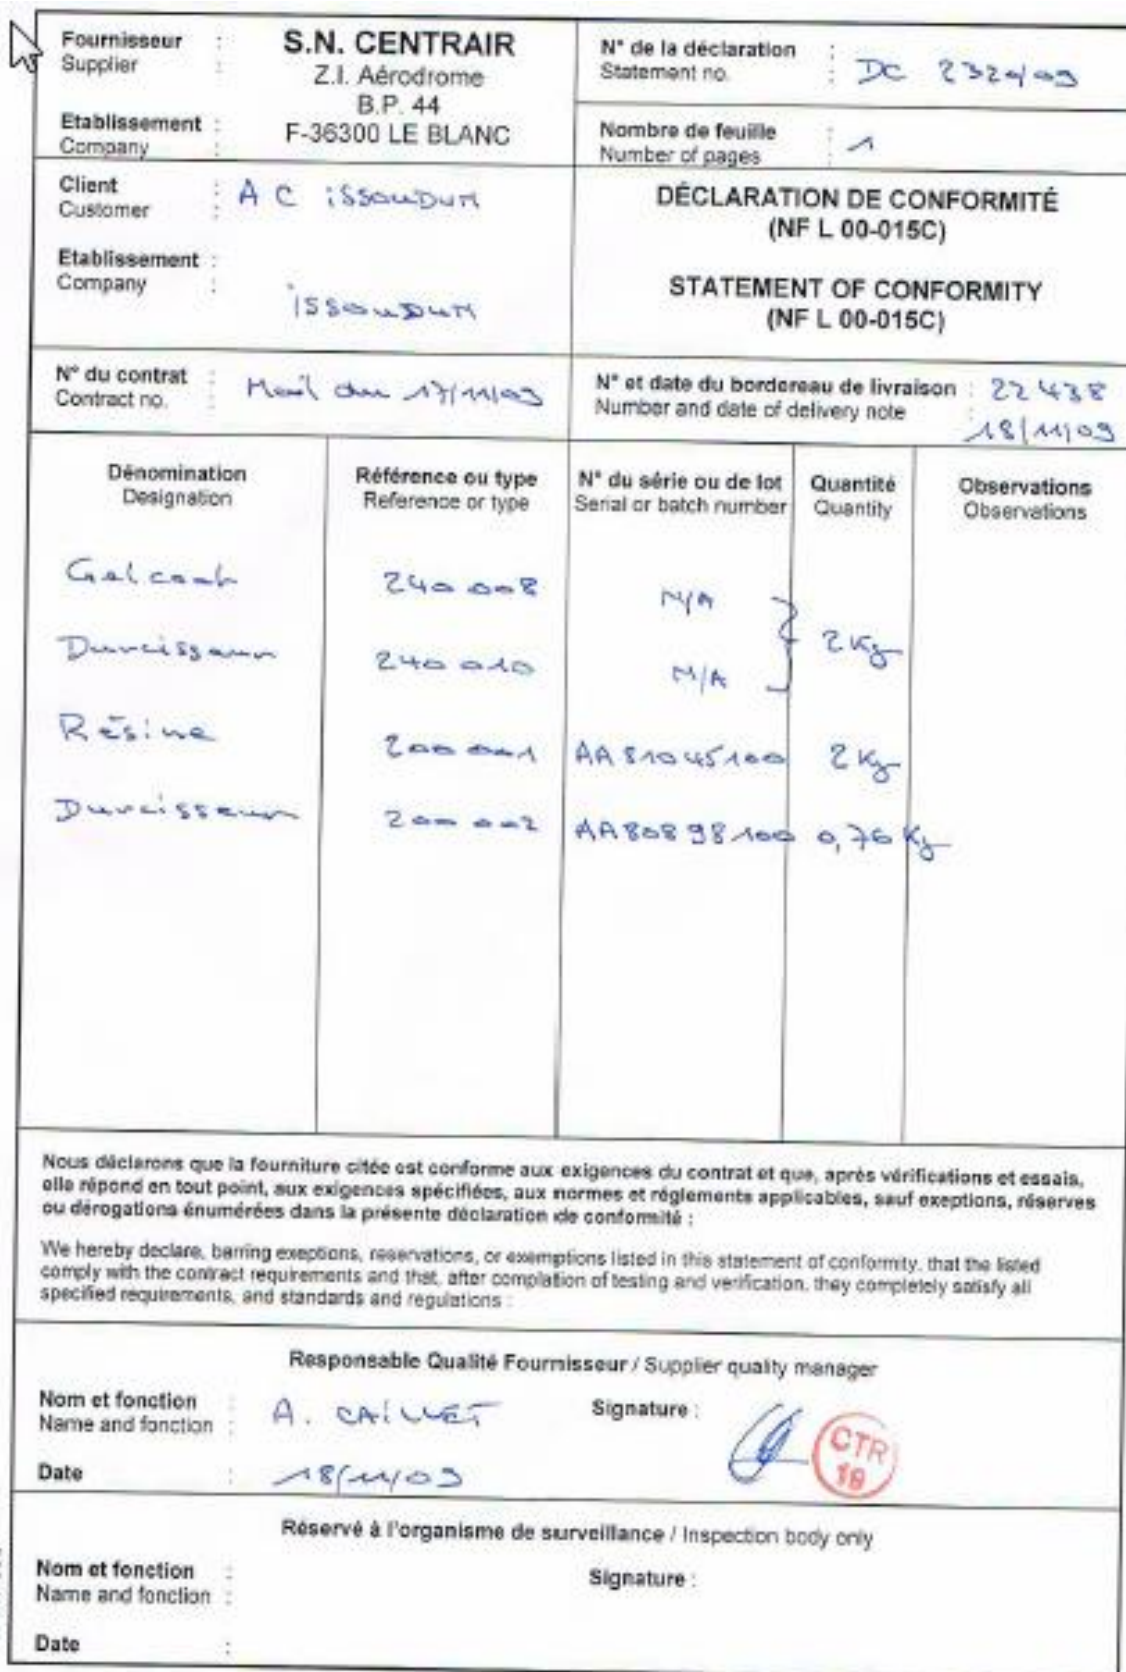 Fournisseur : S.N. CENTRAIR
Supplier : Z.I. Aérodrome
B.P. 44
Etablissement : F-36300 LE BLANC
Company :
N° de la déclaration :
Statement no. : DC 2320/09
Nombre de feuille :
Number of pages : 1
Client : A C ISSOUDUN
Customer :
Etablissement :
Company : ISSOUDUN
DÉCLARATION DE CONFORMITÉ
(NF L 00-015C)
STATEMENT OF CONFORMITY
(NF L 00-015C)
N° du contrat : Mail du 17/11/09
Contract no. :
N° et date du bordereau de livraison : 22 438
Number and date of delivery note : 18/11/09
Dénomination Référence ou type N° du série ou de lot Quantité Observations
Designation Reference or type Serial or batch number Quantity Observations
Gelcoat 240 008 N/A
2 Kg
Durcisseur 240 010 N/A
Résine 200 001 AA81045100 2 Kg
Durcisseur 200 002 AA80898100 0,76 Kg
Nous déclarons que la fourniture citée est conforme aux exigences du contrat et que, après vérifications et essais,
elle répond en tout point, aux exigences spécifiées, aux normes et réglements applicables, sauf exeptions, réserves
ou dérogations énumérées dans la présente déclaration de conformité :
We hereby declare, barring exeptions, reservations, or exemptions listed in this statement of conformity, that the listed
comply with the contract requirements and that, after complation of testing and verification, they completely satisfy all
specified requirements, and standards and regulations :
Responsable Qualité Fournisseur / Supplier quality manager
Nom et fonction : A. CAILLET Signature :
Name and fonction :
CTR
19
Date : 18/11/09
Réservé à l'organisme de surveillance / Inspection body only
Nom et fonction : Signature :
Name and fonction :
Date :